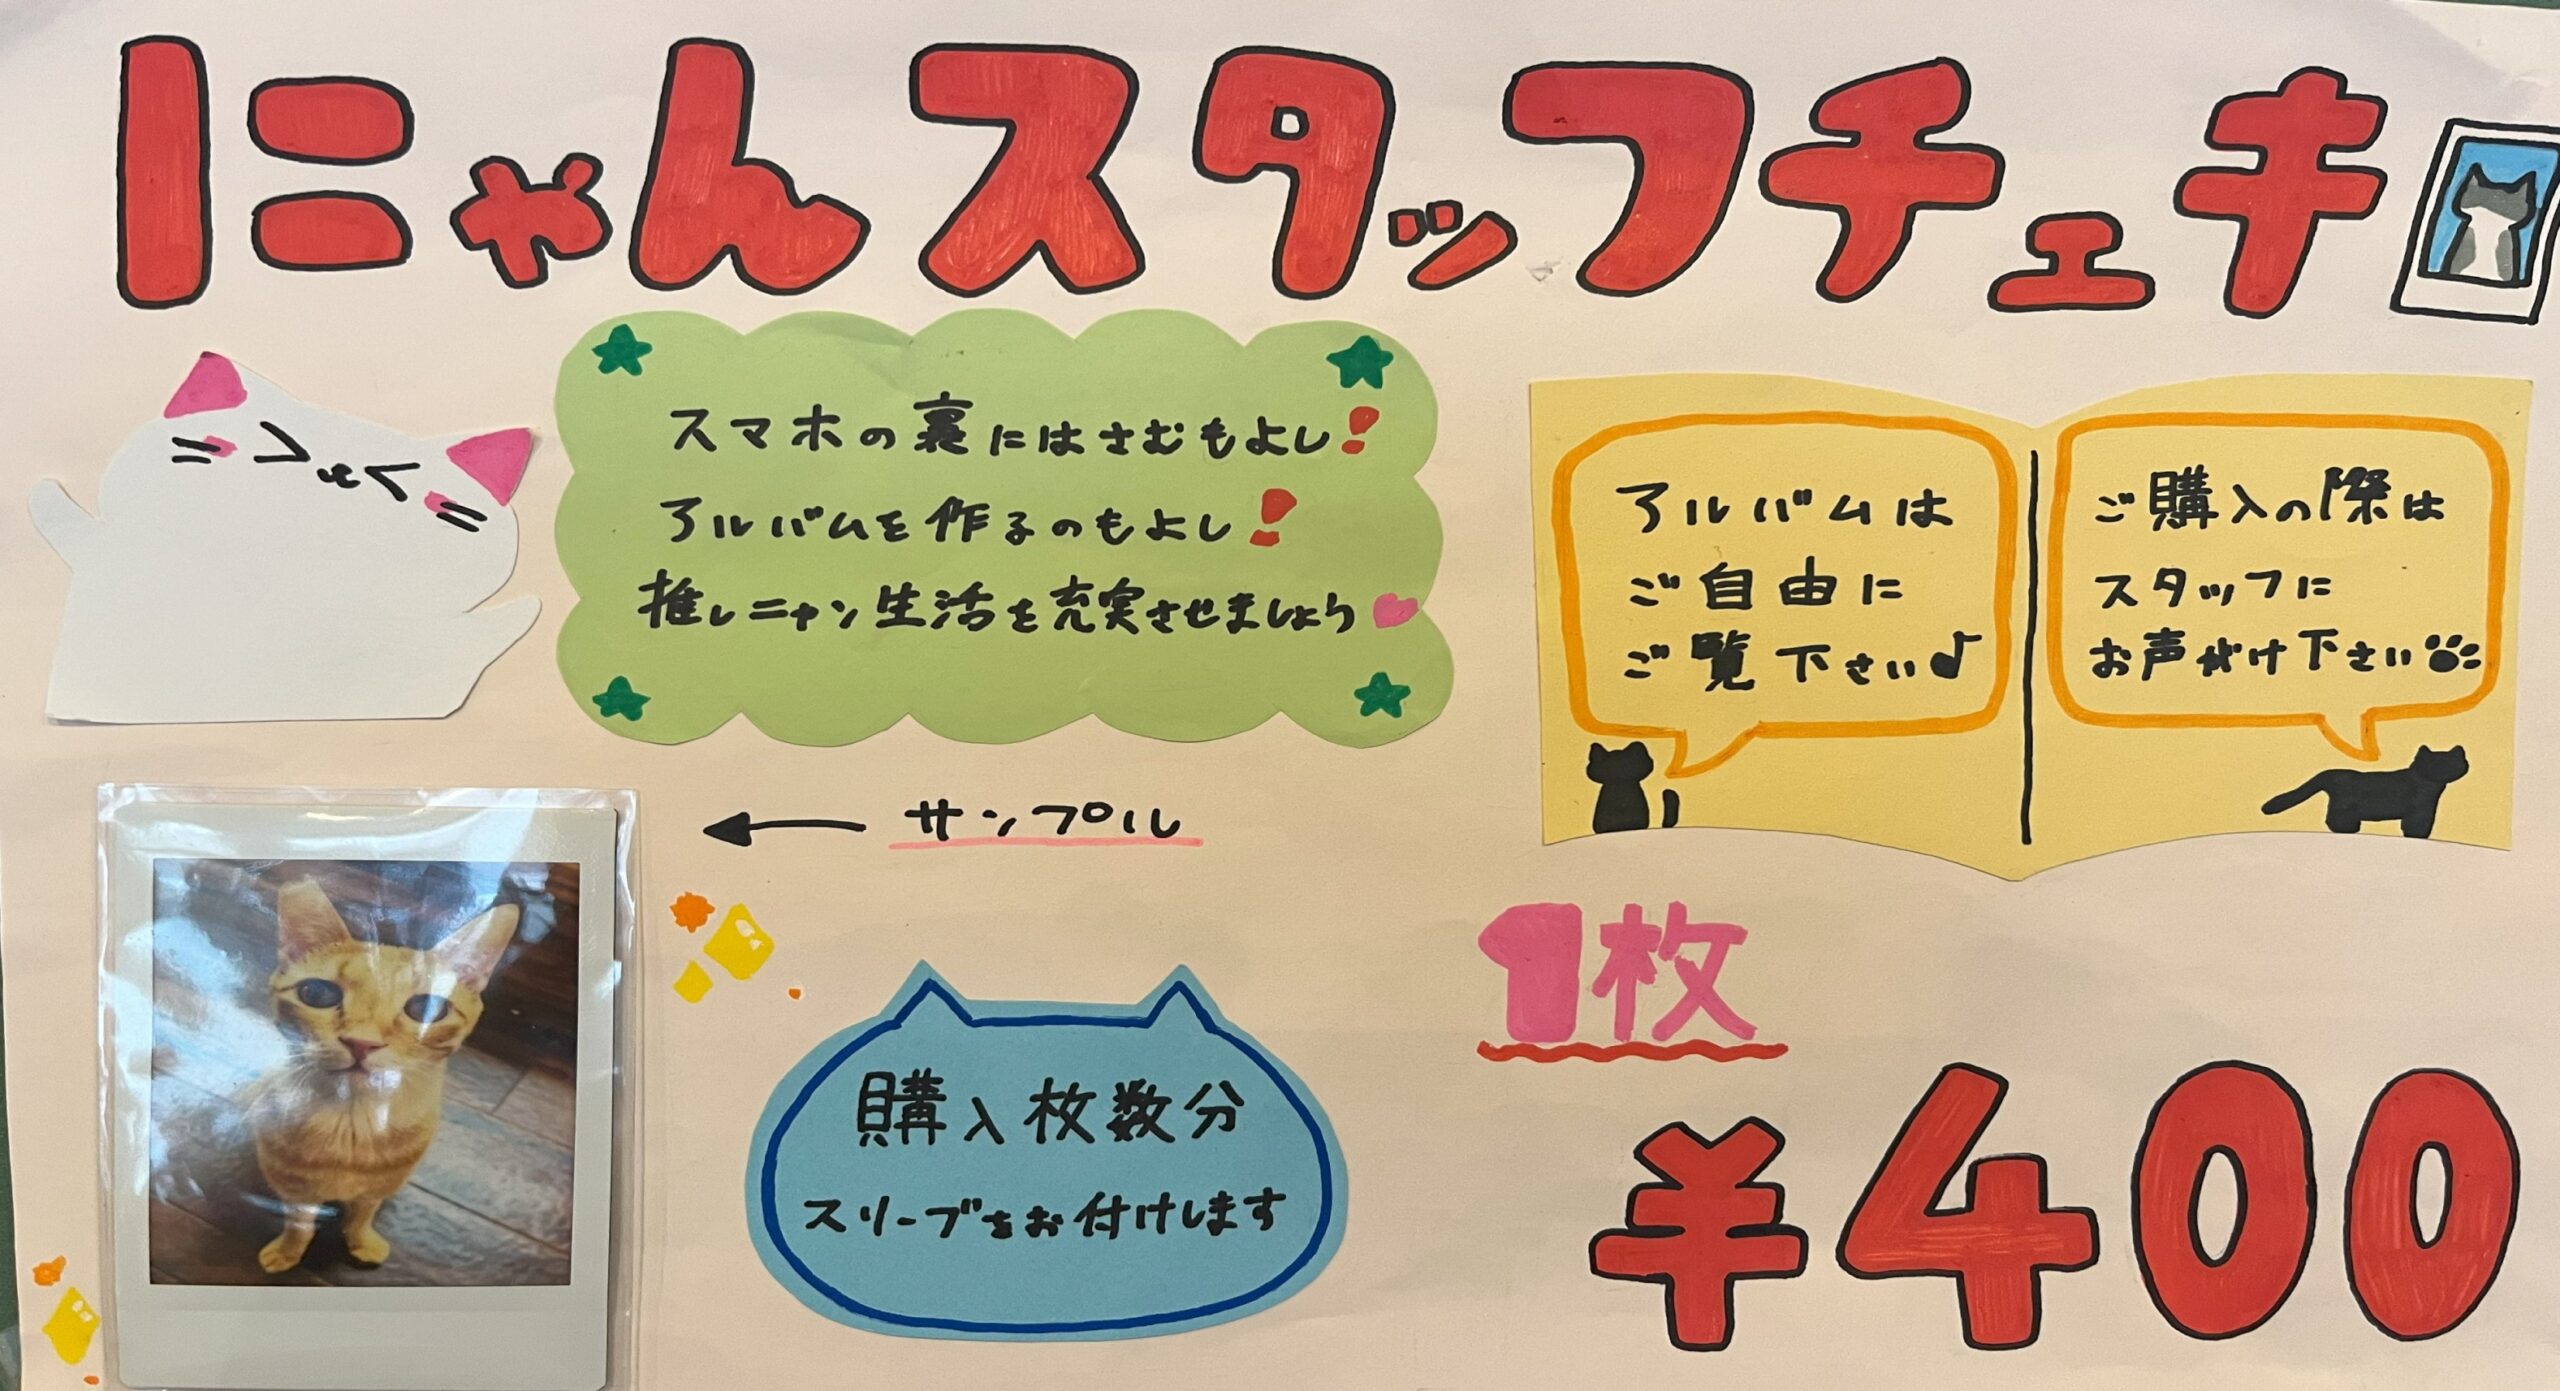 にゃんスタッフチェキ
スマホの裏にはさむもよし!
アルバムを作るのもよし!
推しニャン生活を充実させましょう
アルバムは
ご自由に
ご覧下さい♪
ご購入の際は
スタッフに
お声がけ下さい
サンプル
購入枚数分
スリーブをお付けします
1枚
¥400